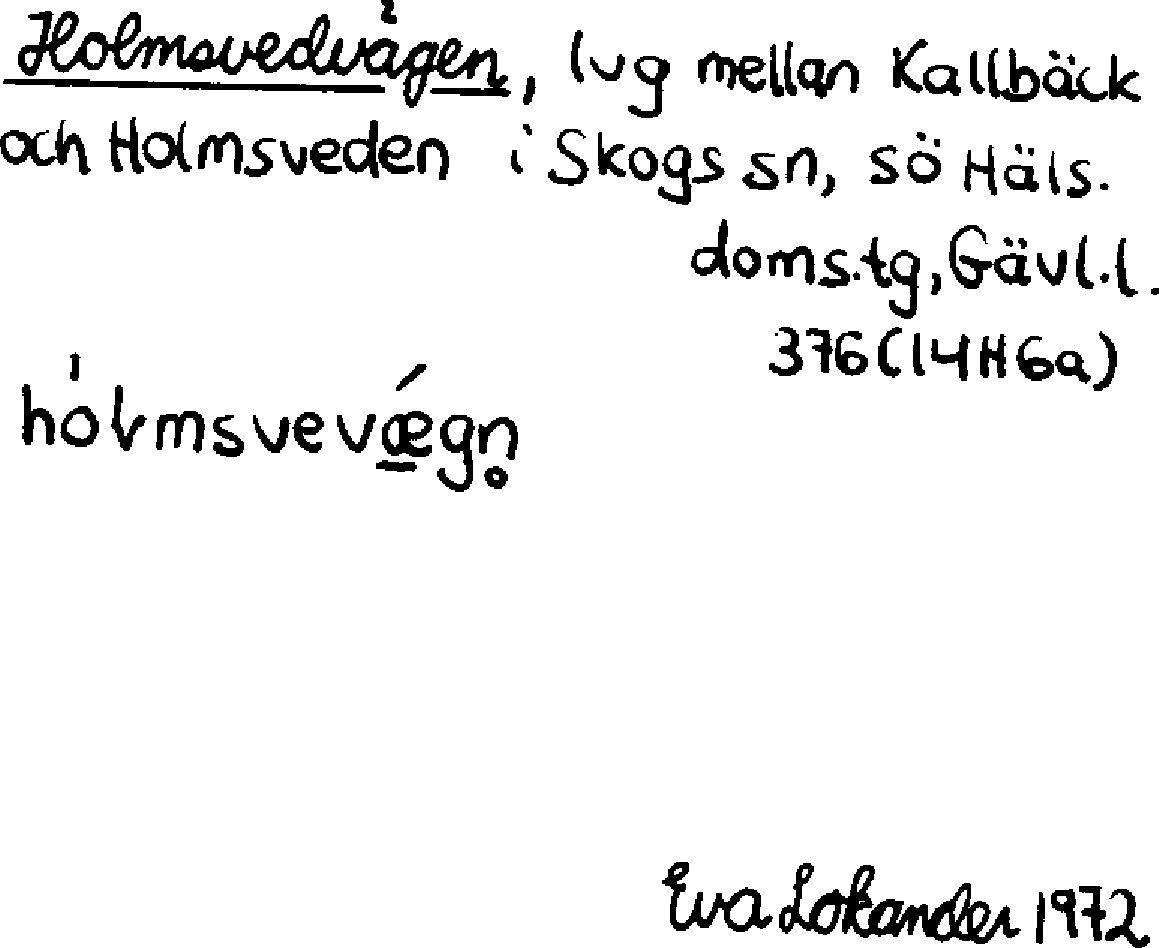 Holmsvedvägen, lvg mellan Kallbäck
och Holmsveden i Skogs sn, sö Häls.
doms.tg, Gävl.l.
376 (14H6a)
hólmsvevǽgn̥
Eva Lokander 1972